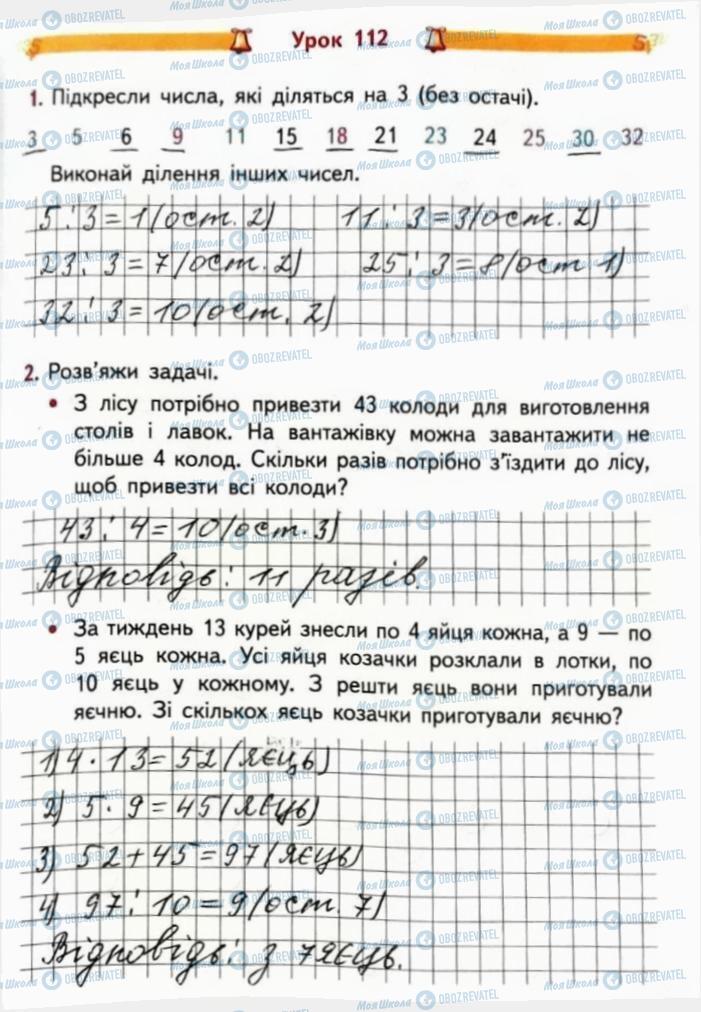 Урок 112
1. Підкресли числа, які діляться на 3 (без остачі).
3 5 6 9 11 15 18 21 23 24 25 30 32
Виконай ділення інших чисел.
5 : 3 = 1 (ост. 2) 11 : 3 = 3 (ост. 2)
23 : 3 = 7 (ост. 2) 25 : 3 = 8 (ост 1)
32 : 3 = 10 (ост. 2)
2. Розв'яжи задачі.
• З лісу потрібно привезти 43 колоди для виготовлення
столів і лавок. На вантажівку можна завантажити не
більше 4 колод. Скільки разів потрібно з'їздити до лісу,
щоб привезти всі колоди?
43 : 4 = 10 (ост. 3)
Відповідь: 11 разів.
• За тиждень 13 курей знесли по 4 яйця кожна, а 9 — по
5 яєць кожна. Усі яйця козачки розклали в лотки, по
10 яєць у кожному. З решти яєць вони приготували
яєчню. Зі скількох яєць козачки приготували яєчню?
1) 4 · 13 = 52 (яєць)
2) 5 · 9 = 45 (яєць)
3) 52 + 45 = 97 (яєць)
4) 97 : 10 = 9 (ост. 7)
Відповідь: з 7 яєць.